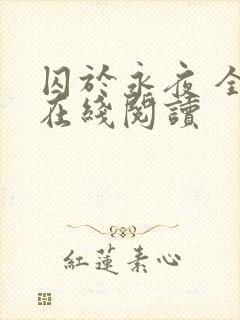 囚於永夜 全
在綫閱讀
紅蓮素心